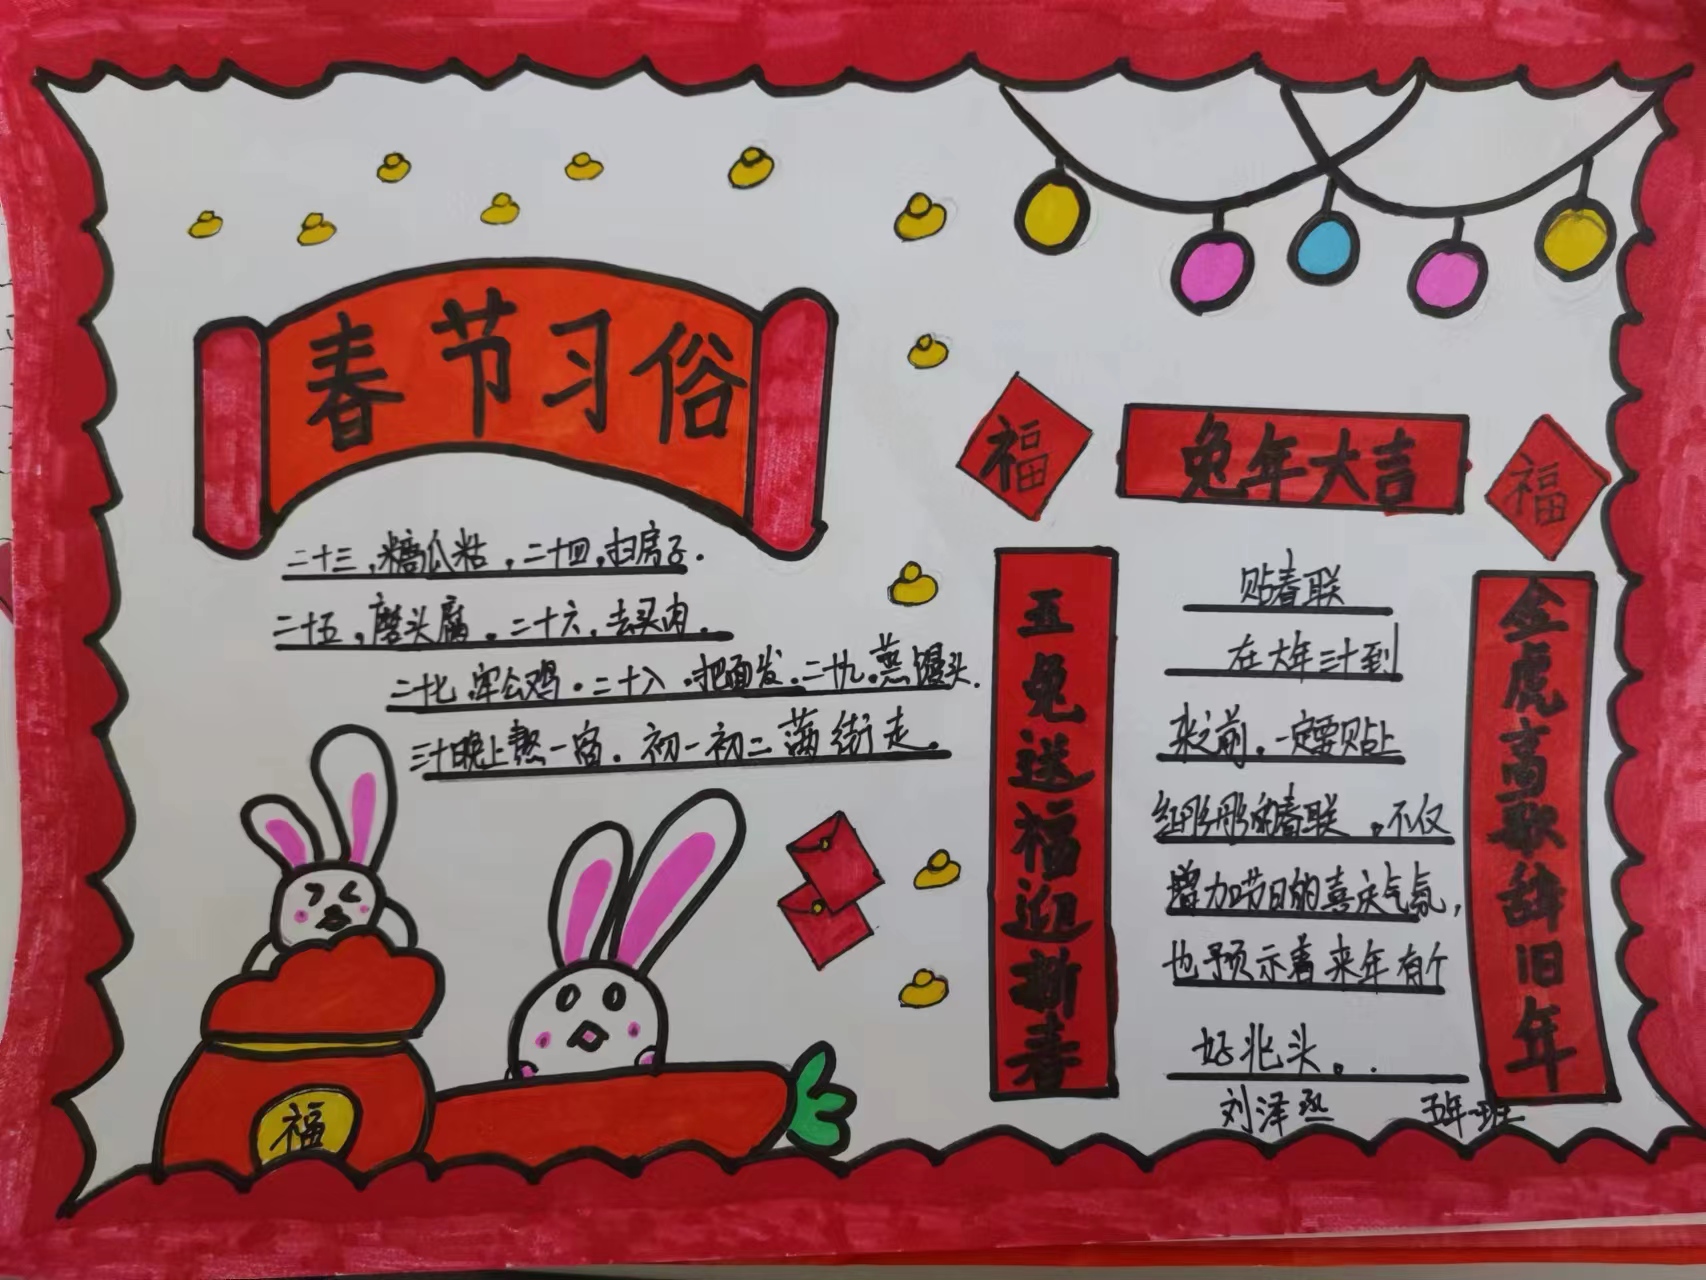 春节习俗
二十三,糖瓜粘,二十四,扫房子.
二十五,磨头腐,二十六,去买肉.
二十七,宰公鸡.二十八,把面发.二十九.蒸馒头.
三十晚上熬一宿.初一初二满街走.
福
福
兔年大吉
福
玉兔送福迎新春
贴春联
在大年三十到
来之前.一定要贴上
红彤彤的春联.不仅
增加节日的喜庆气氛,
也预示着来年有个
好兆头。
金虎高歌辞旧年
刘泽丞 五年一班